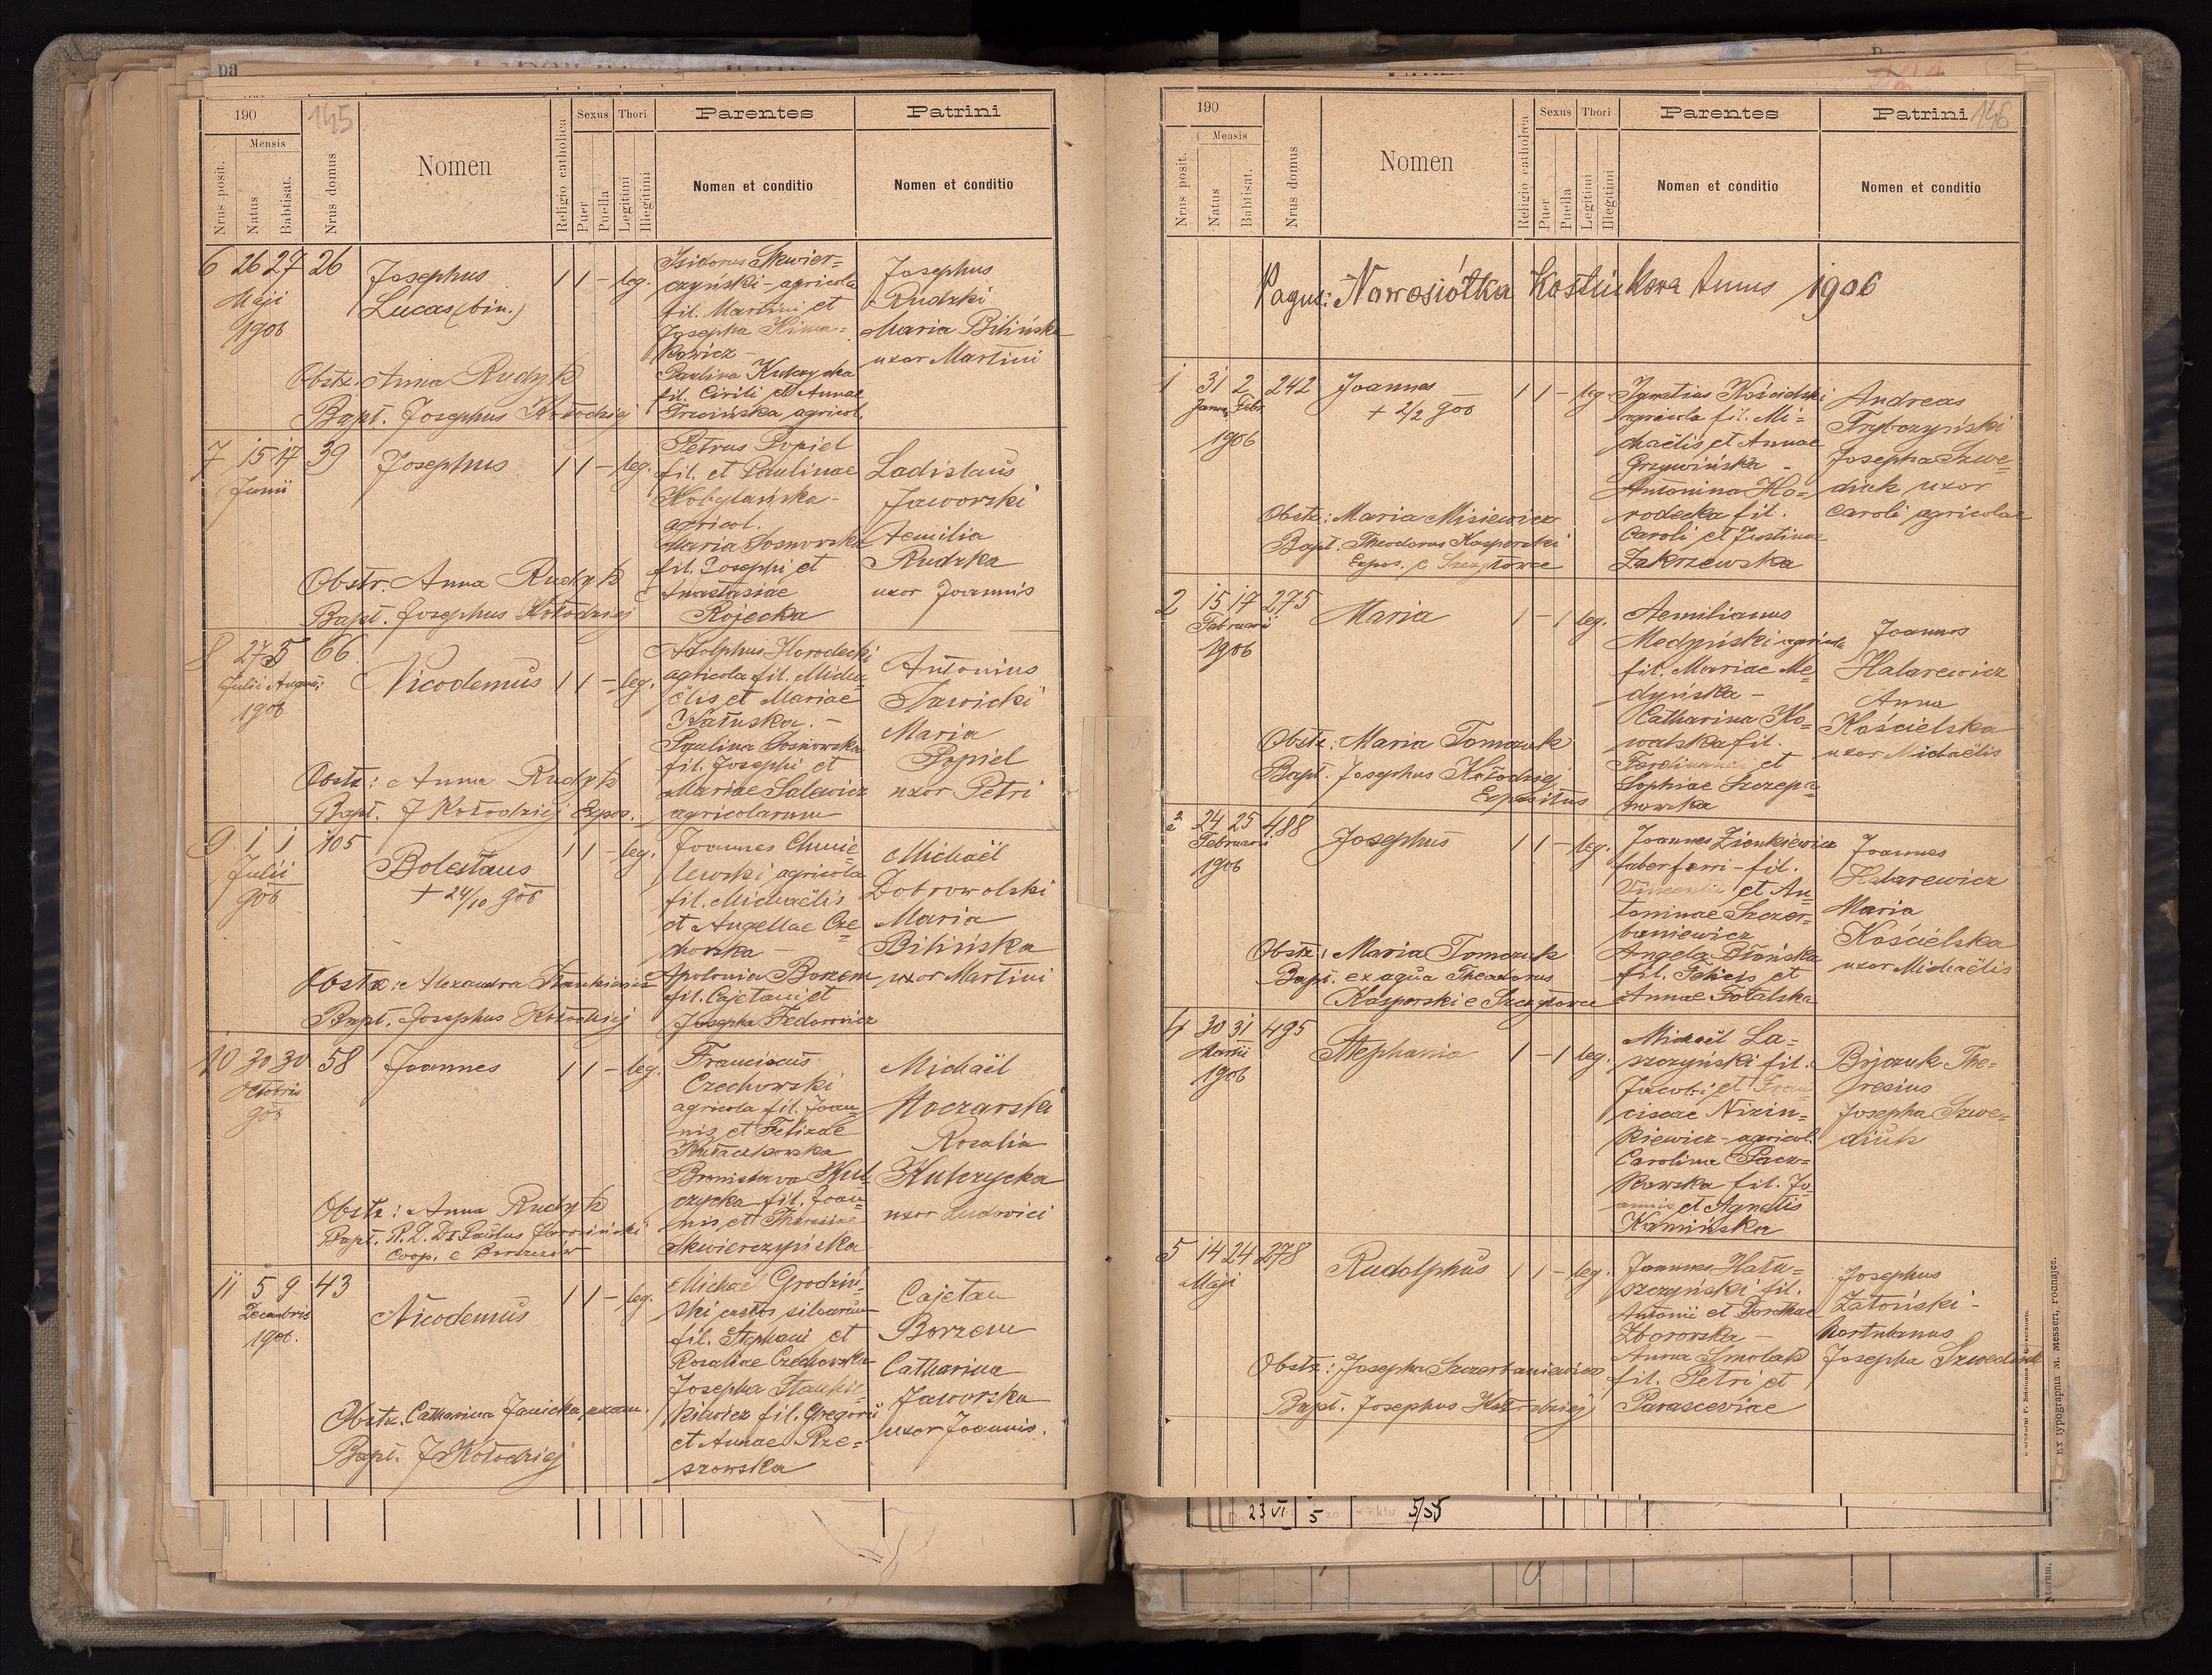 190
145
Mensis
Nrus posit.
Natus
Babtisat.
Nrus domus
Nomen
Religio catholica
Sexus
Puer
Puella
Thori
Legitimi
Illegitimi
Parentes
Nomen et conditio
Patrini
Nomen et conditio
6 26 27 26
Maji
1906
Josephus
Lucas (bin.)
1 1 - leg.
Isidorus Skwier=
czyński - agricola
fil. Martini et
Josepha Klima=
kowicz -
Paulina Kulczycka
fil. Cirili et Annae
agricol.
Josephus
Rudzki
Maria Bilińska
uxor Martini
Obstr. Anna Rudyk
Bapt. Josephus Kołodziej
7 15 17 39
Junii
Josephus
1 1 - leg.
Petrus Popiel
fil. et Paulinae
Kobylańska -
agricol.
Maria Sosnowska
fil. Josephi et
Anastasiae
Rojecka
Ladislaus
Jaworski
Aemilia
Rudzka
uxor Joannis
Obstr. Anna Rudyk
Bapt. Josephus Kołodziej
8 27 5 66
Julii Augusti
1906
Nicodemus
1 1 - leg.
Adolphus Horodecki
agricola fil. Micha=
ëlis et Mariae
Kałuska. -
Paulina Sosnowska
fil. Josephi et
Mariae Salewicz
agricolarum
Antonius
Sawicki
Maria
Popiel
uxor Petri
Obstr: Anna Rudyk
Bapt. J Kołodziej Expos.
9 1 1 105
Julii
906
Bolesłaus
+ 24/10 908
1 1 - leg.
Joannes Chmie=
lewski agricola
fil. Michaëlis
et Angellae Cze=
chowska -
Apolonia Borzem
fil. Cajetani et
Josepha Fedorowicz
Michaël
Dobrowolski
Maria
Bilińska
uxor Martini
Obstr: Alexandra Stankiewicz
Bapt. Josephus Kołodziej
10 30 30 58
Octobris
906
Joannes
1 1 - leg.
Franciscus
Czechowski
agricola fil. Joan=
nis et Felixae
Kułaczkowska
Bronislava Kul=
czycka fil. Joan=
nis et Theresiae
Skwierczyńska
Michaël
Moczarski
Rosalia
Kulczycka
uxor Ludovici
Obstr: Anna Rudyk
Bapt. R. D. Dr Paulus
Coop. e Borszczów
11 5 9 43
Decembris
1906.
Nicodemus
1 1 - leg.
Michaël Grodziń=
ski custos silvarum
fil. Stephani et
Rosaliae Czechowska
Josepha Stankie=
wicz fil. Gregorii
et Annae Rze=
szowska
Cajetan
Borzem
Catharina
Jaworska
uxor Joannis.
Obstr. Catharina Janicka exam.
Bapt. J Kołodziej
190
146
Mensis
Nrus posit.
Natus
Babtisat.
Nrus domus
Nomen
Religio catholica
Sexus
Puer
Puella
Thori
Legitimi
Illegitimi
Parentes
Nomen et conditio
Patrini
Nomen et conditio
Pagus: Nowosiółka Kostiukowa Annus 1906
1 31 2 242
Janu. Febr.
1906
Joannes
+ 2/2 900
1 1 - leg.
Ignatius Kościelski
agricola fil. Mi=
chaëlis et Annae
Grzywińska -
Antonina Ho=
rodecka fil.
Caroli et Justinae
Zakrzewska
Andreas
Trybczyński
Josepha Szwe=
diuk uxor
Caroli agricolae
Obstr: Maria Misiewicz
Bapt. Theodorus Kasperski
Expos. e Szczytowce
2 15 17 275
Februarii
1906
Maria
1 - 1 leg.
Aemilianus
Medyński agricola
fil. Mariae Me=
dyńska -
Catharina Ko=
walska fil.
Ferdinandi et
Sophiae Szczepa=
nowska
Joannes
Halarewicz
Anna
Kościelska
uxor Michaëlis
Obstr: Maria Tomczuk
Bapt. Josephus Kołodziej
Expositus
3 24 25 488
Februarii
1906
Josephus
1 1 - leg.
Joannes Zienkiewicz
faber ferri - fil.
Vincentii et An=
toninae Szczer=
baniewicz
Angela Błońska
fil. Felicis et
Annae
Joannes
Halarewicz
Maria
Kościelska
uxor Michaëlis
Obstr: Maria Tomczuk
Bapt. ex aqua Theodorus
Kasperski e Szczytowce
4 30 31 495
Martii
1906
Stephania
1 - 1 leg.
Michaël La=
szczyński fil.
Jacobi et Fran=
ciscae Nizin=
kiewicz - agricol.
Carolina Pacz=
kowska fil. Jo=
annis et Agnetis
Kamińska
Bojczuk The=
resius
Josepha Szwe=
diuk
5 14 24 278
Maji
Rudolphus
1 1 - leg.
Joannes Hału=
szczyński fil.
Antonii et Dorotheae
Zborowska -
Anna Smolak
fil. Petri et
Parasceviae
Josephus
Zatoński -
hortulanus
Josepha Szwediuk
Obstr: Josepha Szczerbaniewicz
Bapt. Josephus Kołodziej
23 VI 5 5/55
Ex typographia M. Messeri, rodnajec.